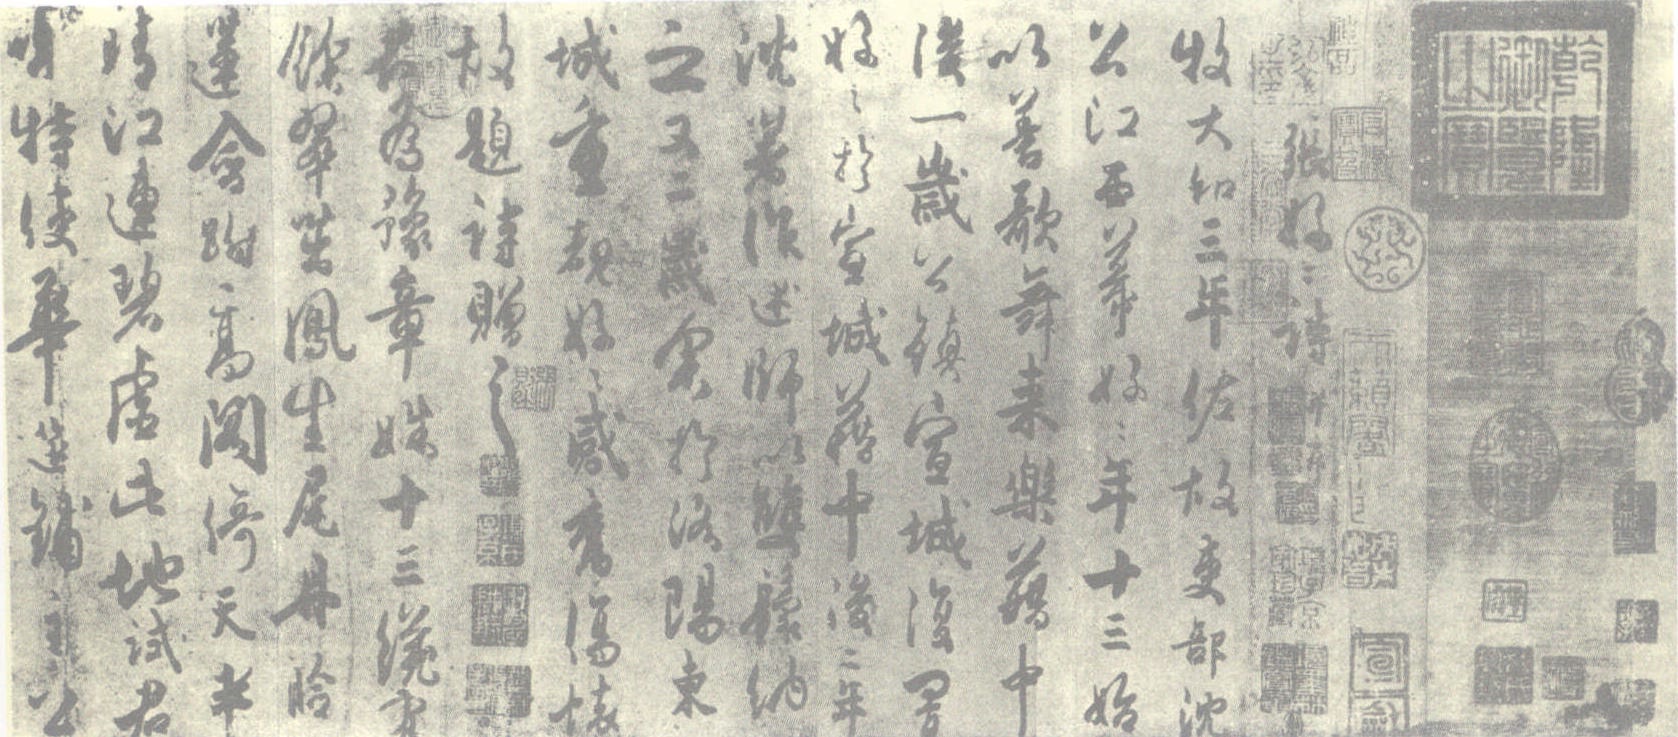 乾隆御覽之寶
張好〻詩并序
牧大和三年佐故吏部沈
公江西幕好〻年十三始
以善歌舞来樂籍中
後一歲公鎮宣城復置
好〻於宣城籍中後二年
沈著作述師以雙鬟納
之又二歲余於洛陽東
城重覩好〻感舊傷懷
故題詩贈之
君為豫章姝十三纔有
餘翠茁鳳生尾丹臉
蓮含跗高閣倚天半
晴江連碧虛此地試君
唱特使華筵鋪主公